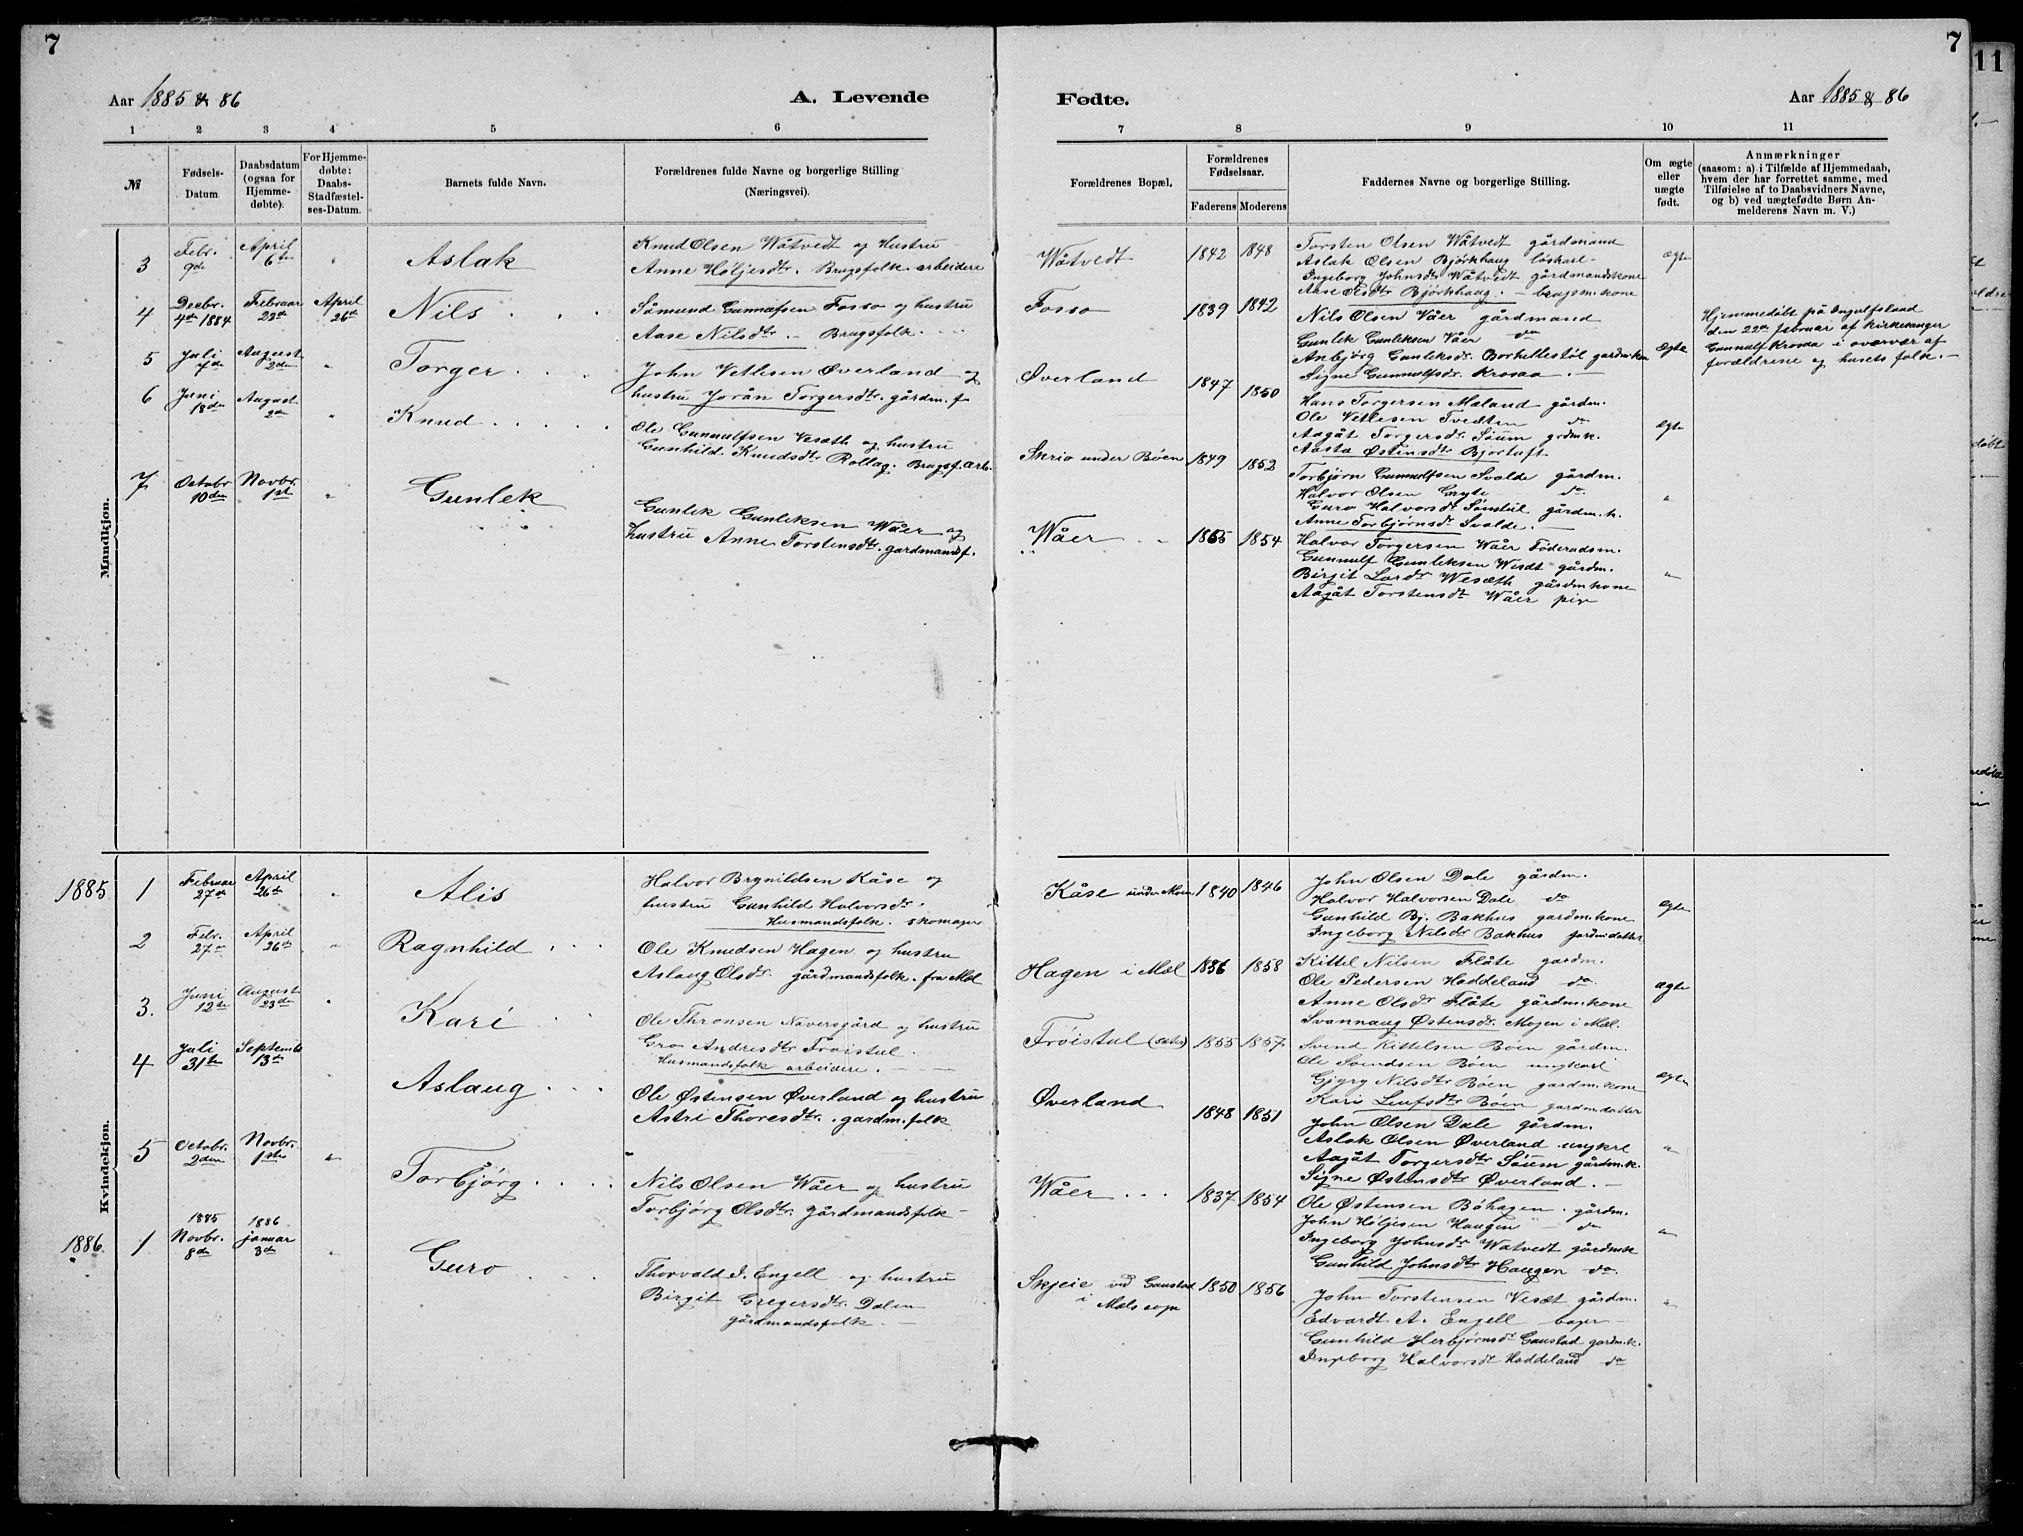 7
7
11
Aar 1885 & 86
A. Levende
Fødte.
Aar 1885 & 86
1 2 3 4 5 6 7 8 9 10 11
№
Fødsels-
Datum.
Daabsdatum
(ogsaa for
Hjemme-
døbte).
For Hjemme-
døbte:
Daabs-
Stadfæstel-
ses-Datum.
Barnets fulde Navn.
Forældrenes fulde Navne og borgerlige Stilling
(Næringsvei).
Forældrenes Bopæl.
Forældrenes
Fødselsaar.
Faderens
Moderens
Faddernes Navne og borgerlige Stilling.
Om ægte
eller
uægte
født.
Anmærkninger
(saasom: a) i Tilfælde af Hjemmedaab,
hvem der har forrettet samme, med
Tilføielse af to Daabsvidners Navne,
og b) ved uægtefødte Børn An-
melderens Navn m. V.)
Mandkjøn.
3
Febr.
9de
April
6te
"
Aslak
Knud Olsen Wåtvedt og Hustru
Anne Høljesdtr. Brugsfolk arbeidere
Wåtvedt
1842 1848
Torsten Olsen Wåtvedt gårdmand
Aslak Olsen Bjørkhaug løskarl
Ingeborg Johnsdtr Wåtvedt gårdmandskone
Aase Olsdtr Bjørkhaug. — brugsm.kone
ægte
4
Decbr.
4de 1884
Februar
22de
April
26de
Nils
Sømund Gunnulfsen Fosso og hustru
Aase Nilsdtr. — Brugsfolk.
Fosso
1839 1842
Nils Olsen Våer gårdmand
Gunlek Gunleksen Våer do
Anbjørg Gunleksdr. Borhellestøl gardmkon
Signe Gunnulfsdr. Krosaa. —
Ægte
Hjemmedøbt på Ingulfsland
den 22de februar af kirkesanger
Gunnulf Krosaa i overvær af
forældrene og husets folk. —
5
Juli
7de
August
2den
"
Torger
John Vetlesen Øverland og
hustru Jorån Torgersdtr. gårdm.f
Øverland
1847 1850
Hans Torgersen Mæland gårdm.
Ole Vetlesen Tvedten do
Aagåt Torgersdr. Søum grdmk.
Aasta Østensdtr Bjortuft.
ægte
6
Juni
18de
August
2de
"
Knud
Ole Gunnulfsen Vesæth og hustru
Gunhild Knudsdtr Rollag. Brugsf. arb.
Skrio under Bøen
1849 1852
Torbjørn Gunnulfsen Svalde gårdm.
Halvor Olsen Gryte do.
Guro Halvorsdt Sømtül gårdm.k.
Anne Torbjørnsdt Svalde. —
"
7
Octobr
10den
Novbr.
1st
"
Gunlek
Gunlek Gunleksen Wåer og
hustru Anne Torstensdtr. gardmandsf.
Wåer
1855 1854
Halvor Torgersen Wåer Føderadsm.
Gunnulf Gunleksen Wesdt gårdm.
Birgit Larsdr Wesæth gårdmkone
Aagåt Torstensdt Wåer pige
"
Kvindekjøn.
1885
1
Februar
27de
April
26de
"
Alis
Halvor Brynildsen Kåse og
hustru Gunhild Halvorsdr.
Husmandsfolk. skomager
Kåse under Moen
1840 1846
John Olsen Dale gårdm.
Halvor Halvorsen Dale do
Gunhild Bj. Bakhus gardm.kone
Ingeborg Nilsdr Bakhus gardmdatter
ægte
2
Febr.
27de
April
26de
"
Ragnhild
Ole Knudsen Hagen og hustru
Aslaug Olsdr. gårdmandsfolk. fra Mæl
Hagen i Mæl
1856 1858
Kittel Nilsen Flåte gardm.
Ole Pedersen Haddeland do.
Anne Olsdr Flåte gårdm.kone
Svannaug Østensdr. Mogen i Mæl.
ægte
3.
Juni
12te
August
23de
"
Kari
Ole Thronsen Naversgård og hustru
Gro Andresdtr Frøistul.
Husmandsfolk arbeidere.
Frøistul
1855 1857
Svend Kittelsen Bøen gårdm.
Ole Svendsen Bøen ungkarl
Gjyry Nilsdtr Bøen gardm.kone
Kari Leufsdtr Bøen gardmdatter
ægte
4
Juli
31te
Septembr
13de
"
Aslaug
Ole Østensen Øverland og hustru
Astri Thoresdtr. gardm.folk
Øverland
1848 1851
John Olsen Dale gårdm.
Aslak Olsen Øverland ungkrl
Aagåt Torgersdtr Søum gårdm.k.
Signe Østensdtr Øverland. —
"
5
Octobr.
2den
Novbr.
1ste
"
Torbjørg
Nils Olsen Wåer og hustru
Torbjørg Olsdtr. gårdmandsfolk —
Wåer
1837 1854
Ole Østensen Bøhagen. gårdm.
John Høljesen Haugen — do
Ingeborg Johnsdr Watvedt gårdmk
Gunhild Johnsdtr Haugen do.
"
1886.
1
1885
Novbr.
8de
1886
januar
3de
"
Guro
Thorvald J. Engell og hustru
Birgit Gregersdtr. Dalen
gårdmandsfolk. —
Skjeie ved Gaustad
i Mæls sogn
1850 1856
John Torstensen Vesæt gårdm.
Edvardt A. Engell bager —
Gunhild Herbjørnsdt Gaustad gardmk.
Ingeborg Halvorsdt Haddeland do
"